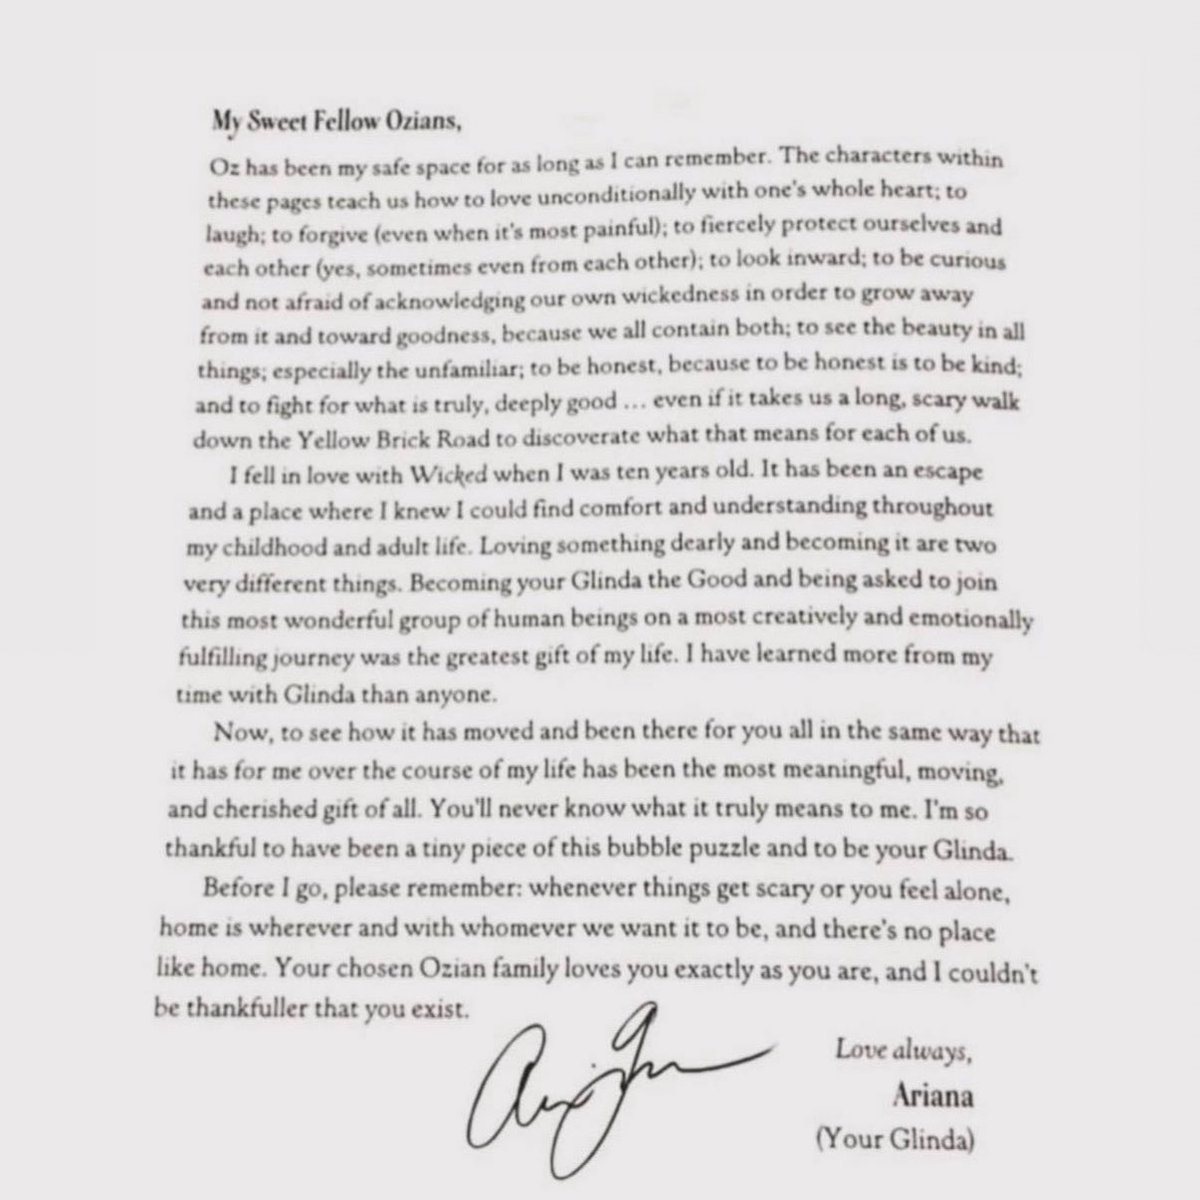 My Sweet Fellow Ozians,
Oz has been my safe space for as long as I can remember. The characters within
these pages teach us how to love unconditionally with one's whole heart; to
laugh; to forgive (even when it's most painful); to fiercely protect ourselves and
each other (yes, sometimes even from each other); to look inward; to be curious
and not afraid of acknowledging our own wickedness in order to grow away
from it and toward goodness, because we all contain both; to see the beauty in all
things; especially the unfamiliar; to be honest, because to be honest is to be kind;
and to fight for what is truly, deeply good ... even if it takes us a long, scary walk
down the Yellow Brick Road to discoverate what that means for each of us.
I fell in love with Wicked when I was ten years old. It has been an escape
and a place where I knew I could find comfort and understanding throughout
my childhood and adult life. Loving something dearly and becoming it are two
very different things. Becoming your Glinda the Good and being asked to join
this most wonderful group of human beings on a most creatively and emotionally
fulfilling journey was the greatest gift of my life. I have learned more from my
time with Glinda than anyone.
Now, to see how it has moved and been there for you all in the same way that
it has for me over the course of my life has been the most meaningful, moving,
and cherished gift of all. You'll never know what it truly means to me. I'm so
thankful to have been a tiny piece of this bubble puzzle and to be your Glinda.
Before I go, please remember: whenever things get scary or you feel alone,
home is wherever and with whomever we want it to be, and there's no place
like home. Your chosen Ozian family loves you exactly as you are, and I couldn't
be thankfuller that you exist.
Love always,
Ariana
(Your Glinda)